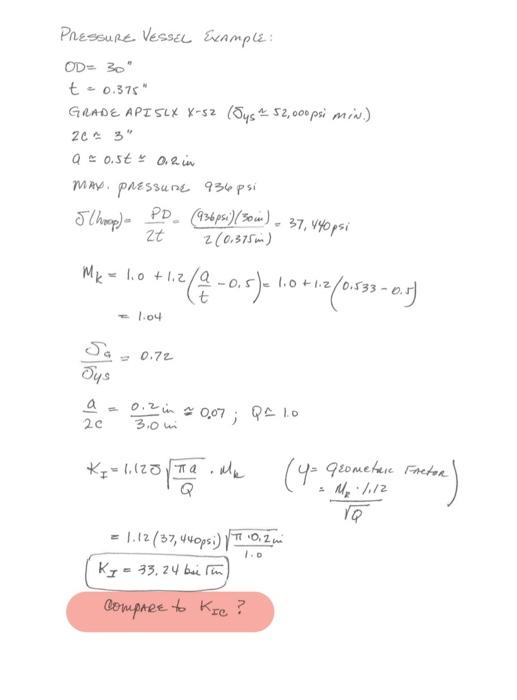 PRESSURE VESSEL EXAMPLE:
OD= 30"
t = 0.375"
GRADE API 5LX X-52 (σys ≃ 52,000 psi min.)
2c ≃ 3"
a ≃ 0.5t ≃ 0.2 in
MAX. PRESSURE 936 psi
σ(hoop)= PD/2t = (936 psi)(30 in)/2(0.375 in) = 37,440 psi
Mk = 1.0 + 1.2(a/t - 0.5) = 1.0 + 1.2(0.533 - 0.5)
= 1.04
σa/σys = 0.72
a/2c = 0.2 in/3.0 in ≃ 0.07 ; Q ≃ 1.0
KI = 1.12σ√(πa/Q) · Mk (Y = geometric Factor = Mk · 1.12/√Q)
= 1.12(37,440 psi)√(π · 0.2 in/1.0)
KI = 33.24 ksi √in
COMPARE to KIC ?